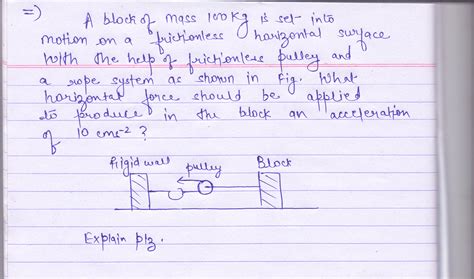 =) A block of mass 100 kg is set into
motion on a frictionless horizontal surface
with the help of frictionless pulley and
a rope system as shown in Fig. What
horizontal force should be applied
to produce in the block an acceleration
of 10 cms-2 ?
Rigid wall pulley Block
Explain plz.